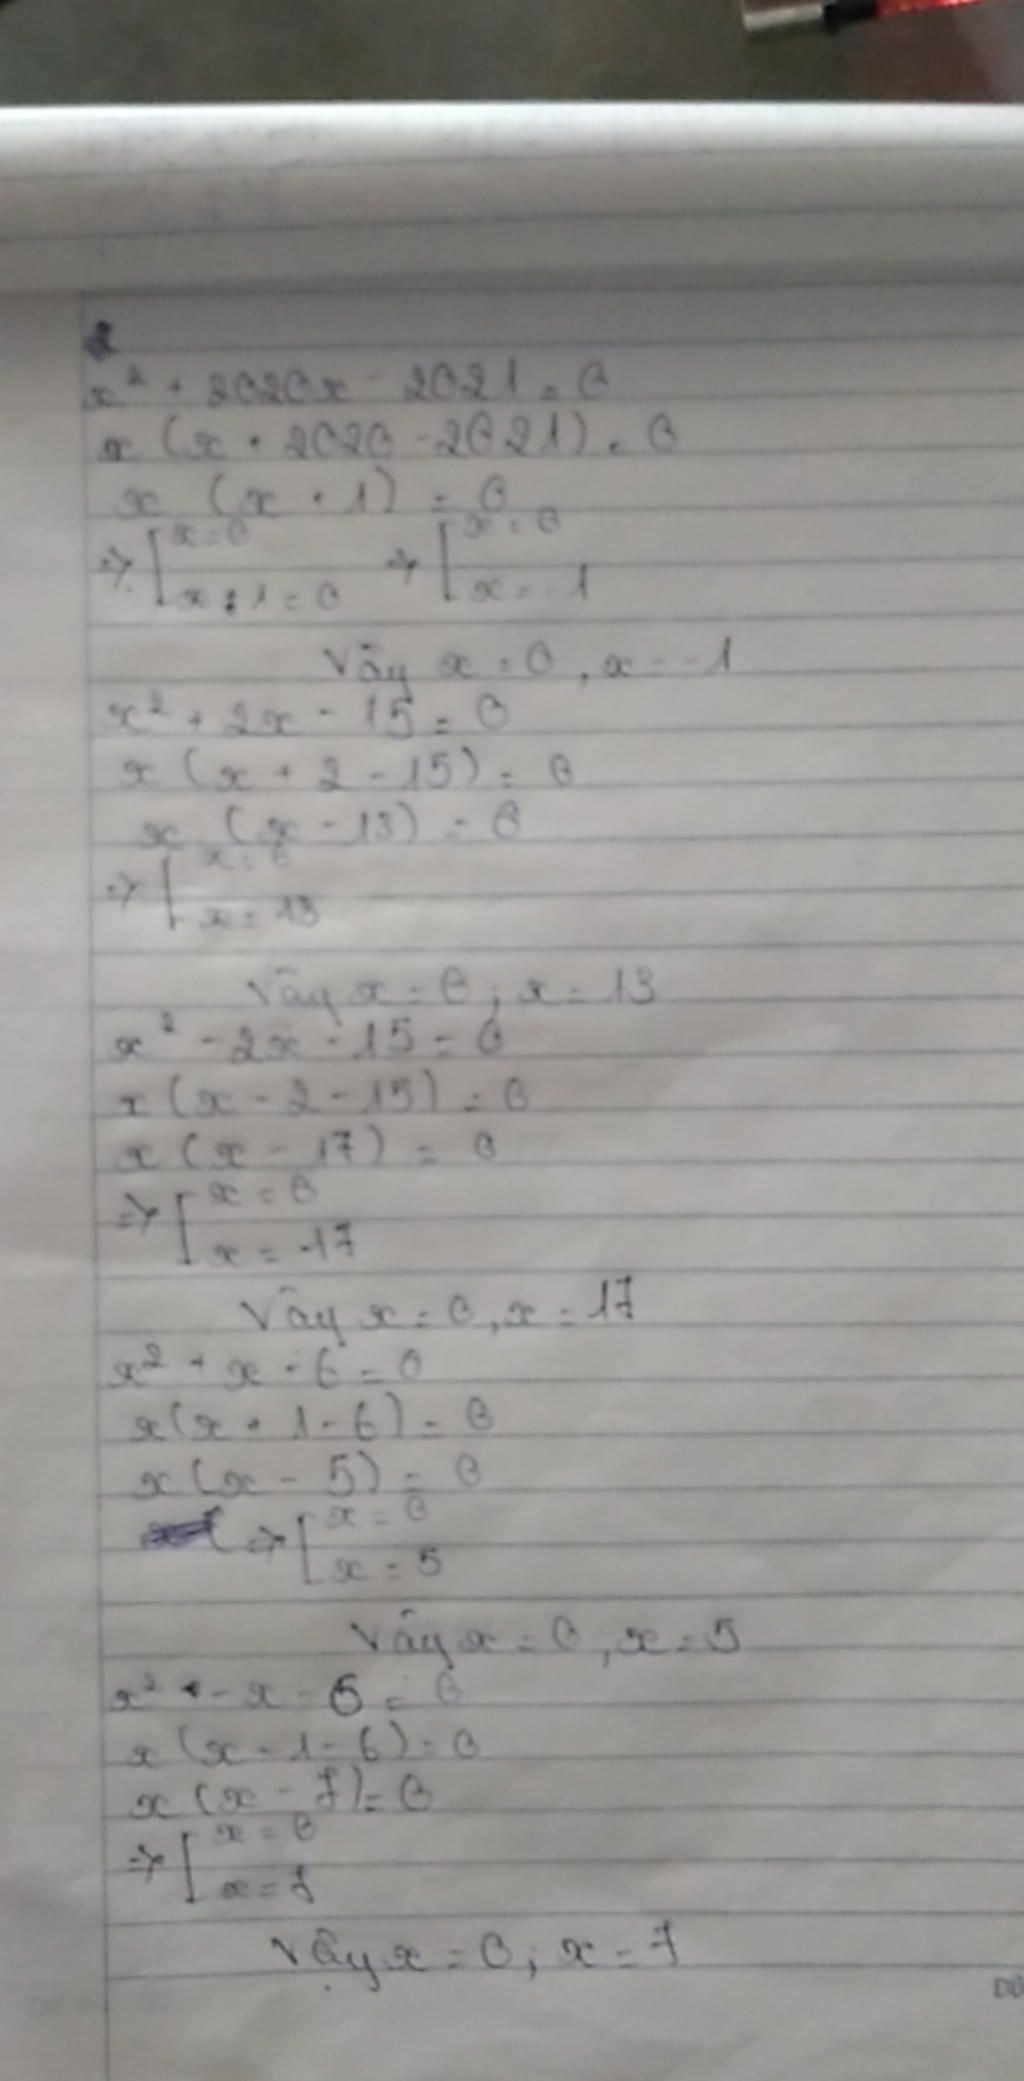 x² + 2020x - 2021 = 0
x (x + 2020 - 2021) = 0
x (x + 1) = 0
=> [ x = 0 => [ x = 0
x + 1 = 0 x = -1
Vậy x = 0, x = -1
x² + 2x - 15 = 0
x (x + 2 - 15) = 0
x (x - 13) = 0
=> [ x = 0
x = 13
Vậy x = 0; x = 13
x² - 2x - 15 = 0
x (x - 2 - 15) = 0
x (x - 17) = 0
=> [ x = 0
x = 17
Vậy x = 0, x = 17
x² + x - 6 = 0
x(x + 1 - 6) = 0
x(x - 5) = 0
=> [ x = 0
x = 5
Vậy x = 0, x = 5
x² - x - 6 = 0
x (x - 1 - 6) = 0
x (x - 7) = 0
=> [ x = 0
x = 7
Vậy x = 0; x = 7